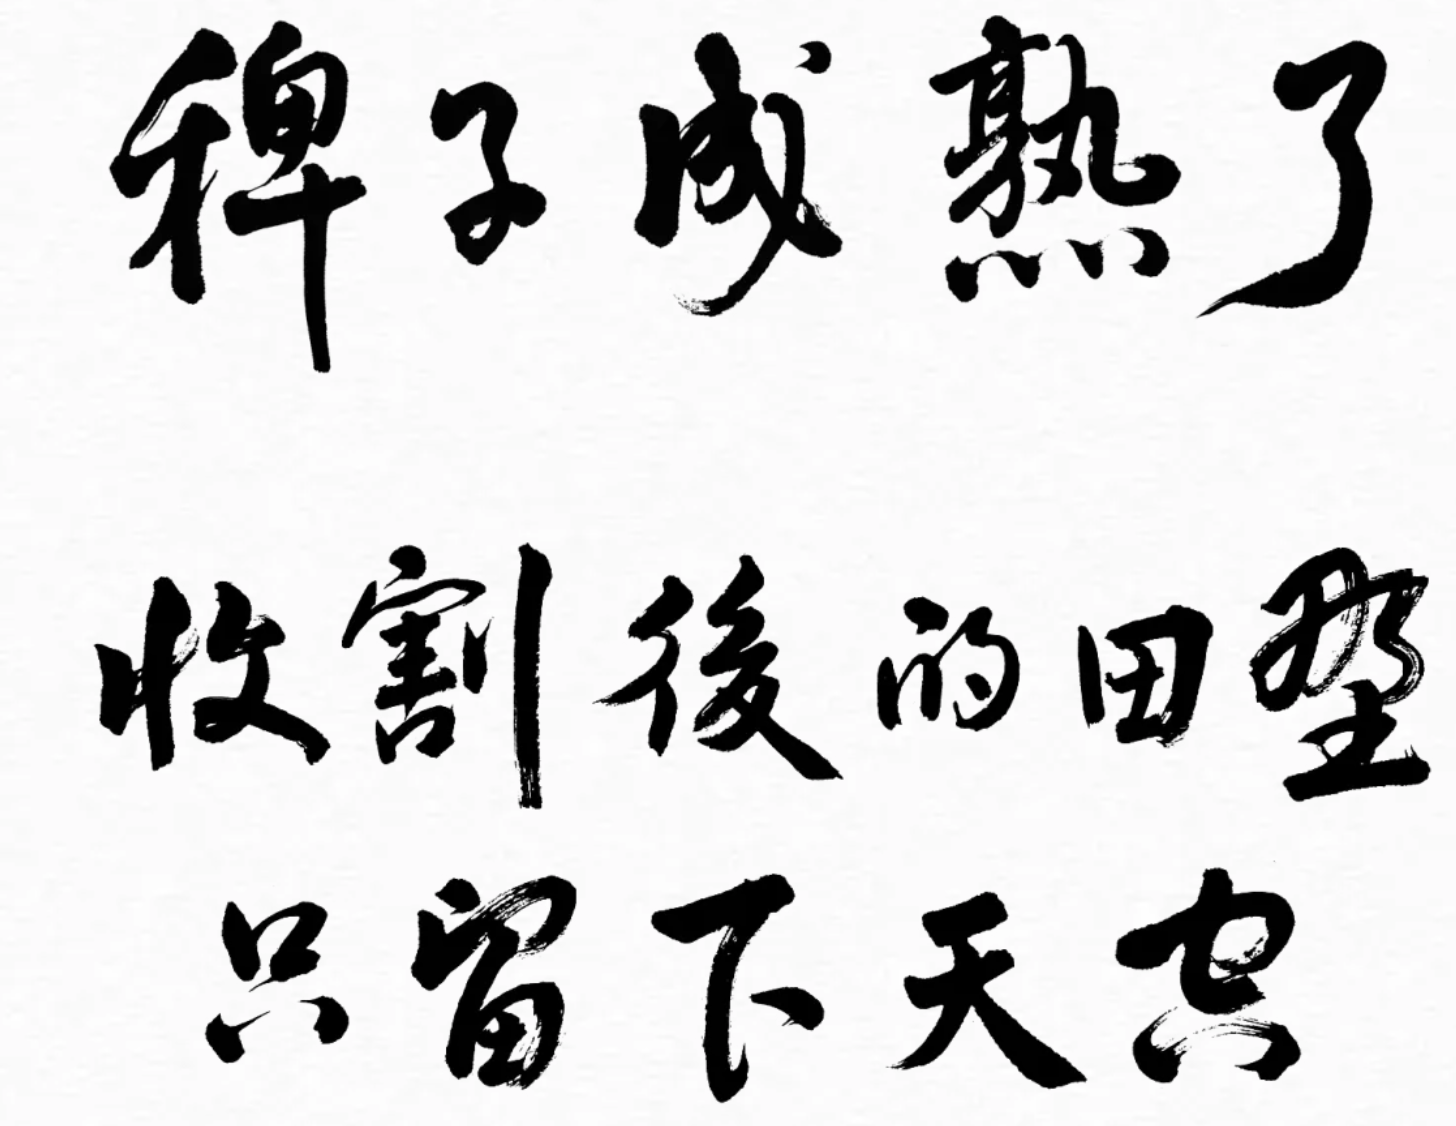 稗子成熟了
收割後的田野
只留下天空